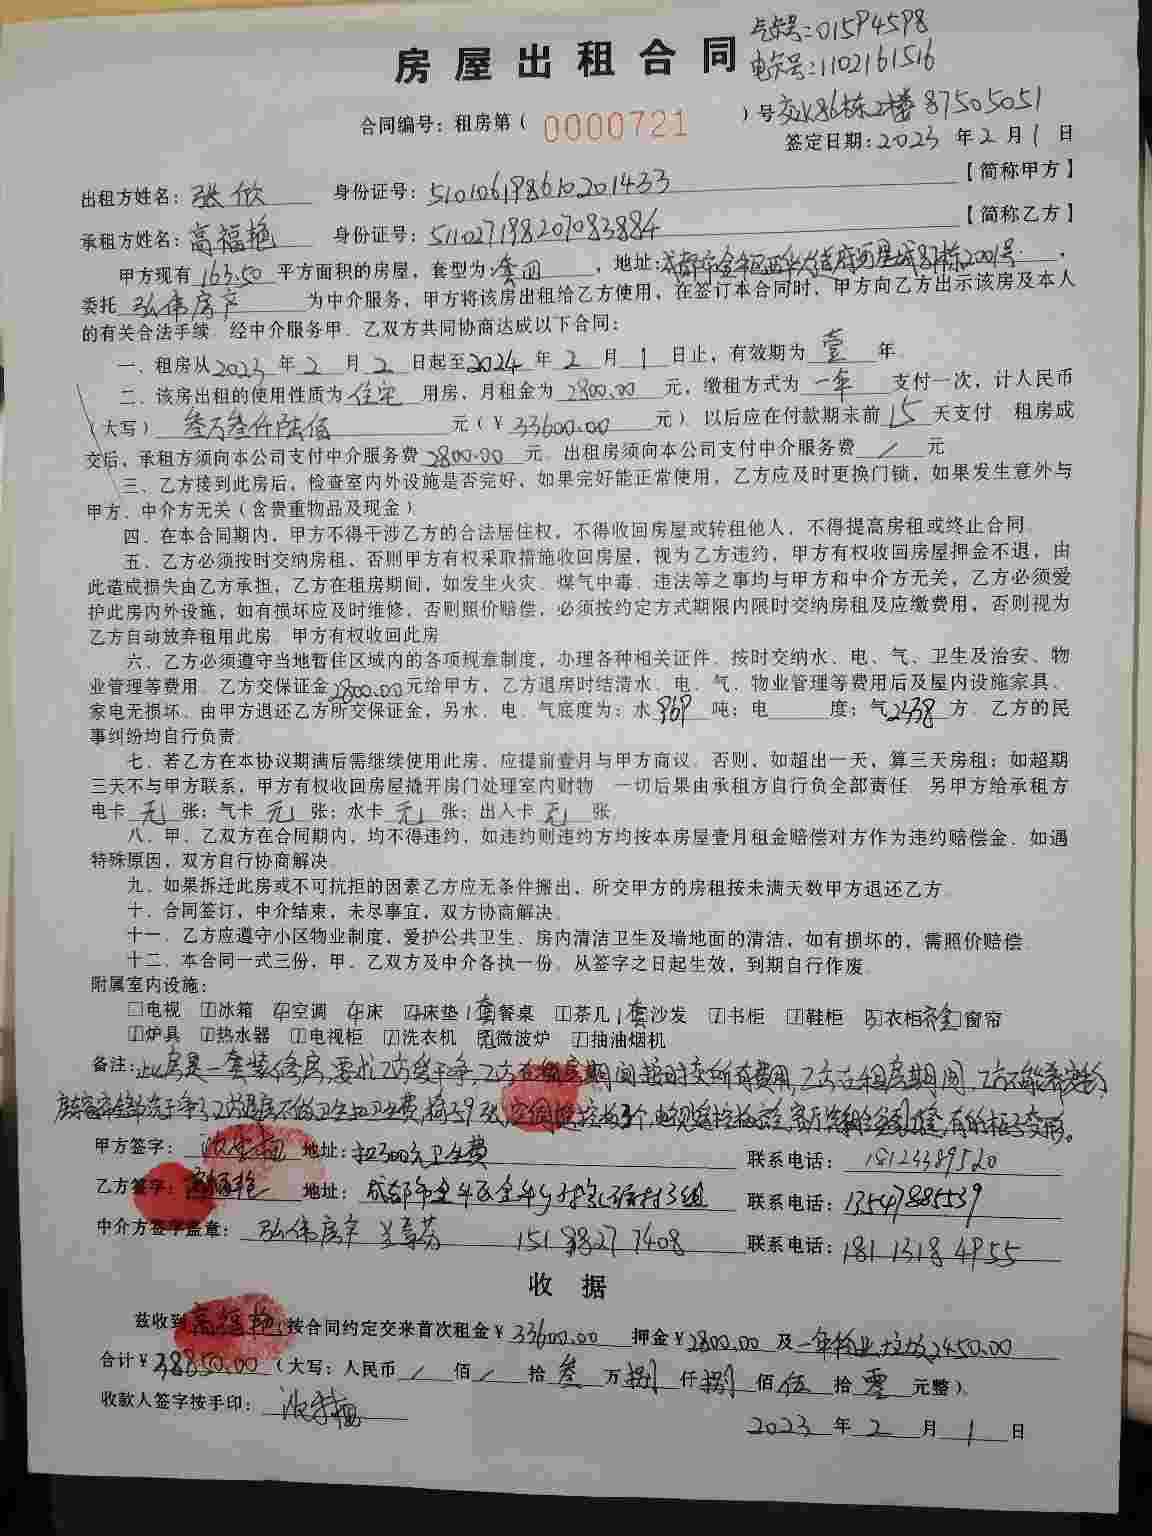 房屋出租合同
气卡号:01594598
电卡号:1102161516
合同编号：租房第（0000721）号 交水86栋2楼 87505051
签定日期:2023年2月1日
出租方姓名:张欣 身份证号:510106198610201433【简称甲方】
承租方姓名:高福艳 身份证号:511027198207083884【简称乙方】
甲方现有163.50平方面积的房屋，套型为:套四，地址:成都市金牛区西华大道府河星城87栋2001号.
委托弘伟房产为中介服务，甲方将该房出租给乙方使用，在签订本合同时，甲方向乙方出示该房及本人
的有关合法手续．经中介服务甲．乙双方共同协商达成以下合同：
一．租房从2023年2月2日起至2024年2月1日止，有效期为壹年．
二．该房出租的使用性质为住宅用房，月租金为2800.00元，缴租方式为一年支付一次，计人民币
（大写）叁万叁仟陆佰元（￥33600.00元）．以后应在付款期末前15天支付．租房成
交后，承租方须向本公司支付中介服务费2800.00元．出租房须向本公司支付中介服务费/元
三、乙方接到此房后，检查室内外设施是否完好、如果完好能正常使用，乙方应及时更换门锁，如果发生意外与
甲方、中介方无关（含贵重物品及现金）
四．在本合同期内，甲方不得干涉乙方的合法居住权，不得收回房屋或转租他人，不得提高房租或终止合同．
五．乙方必须按时交纳房租，否则甲方有权采取措施收回房屋，视为乙方违约，甲方有权收回房屋押金不退，由
此造成损失由乙方承担，乙方在租房期间，如发生火灾．煤气中毒．违法等之事均与甲方和中介方无关，乙方必须爱
护此房内外设施，如有损坏应及时维修，否则照价赔偿，必须按约定方式期限内限时交纳房租及应缴费用，否则视为
乙方自动放弃租用此房．甲方有权收回此房
六．乙方必须遵守当地暂住区域内的各项规章制度，办理各种相关证件．按时交纳水、电、气、卫生及治安、物
业管理等费用．乙方交保证金2800.00元给甲方，乙方退房时结清水．电．气．物业管理等费用后及屋内设施家具、
家电无损坏．由甲方退还乙方所交保证金，另水．电．气底度为：水969吨；电　　度；气2338方．乙方的民
事纠纷均自行负责．
七．若乙方在本协议期满后需继续使用此房．应提前壹月与甲方商议．否则，如超出一天，算三天房租；如超期
三天不与甲方联系，甲方有权收回房屋撬开房门处理室内财物．一切后果由承租方自行负全部责任．另甲方给承租方
电卡无张；气卡无张；水卡无张；出入卡无张．
八．甲．乙双方在合同期内，均不得违约，如违约则违约方均按本房屋壹月租金赔偿对方作为违约赔偿金．如遇
特殊原因，双方自行协商解决．
九．如果拆迁此房或不可抗拒的因素乙方应无条件搬出，所交甲方的房租按未满天数甲方退还乙方．
十．合同签订，中介结束，未尽事宜，双方协商解决．
十一．乙方应遵守小区物业制度，爱护公共卫生．房内清洁卫生及墙地面的清洁，如有损坏的，需照价赔偿．
十二．本合同一式三份，甲．乙双方及中介各执一份．从签字之日起生效，到期自行作废．
附属室内设施：
□电视 1冰箱 4空调 4床 4床垫 1套餐桌 1茶几 1套沙发 1书柜 1鞋柜 5衣柜 窗帘
1炉具 1热水器 1电视柜 1洗衣机 微波炉 1抽油烟机
备注:此房是一套装修房,要求乙方爱干净,乙方在租房期间按时交所有费用,乙方在租房期间,乙方不能养宠物
甲方签字: 地址:扣300元卫生费 联系电话:18123389520
乙方签字:高福艳 地址:成都市金牛区金牛乡 3组 联系电话:13547885539
中介方签字盖章:弘伟房产 15198277408 联系电话:18113184955
收据
兹收到高福艳按合同约定交来首次租金￥33600.00 押金￥2800.00及一年物业,垃圾2450.00
合计￥38850.00（大写：人民币/佰/拾叁万捌仟捌佰伍拾零元整）．
收款人签字按手印:
2023年2月1日